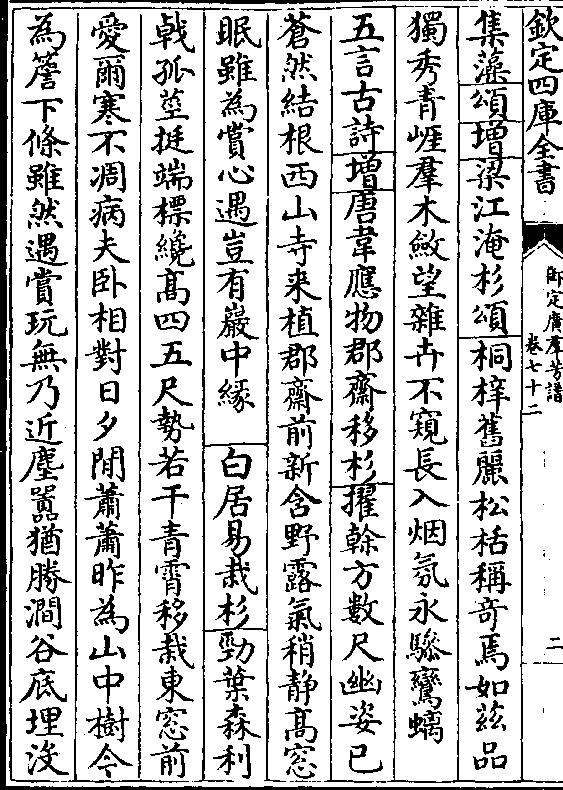 欽定四庫全書
御定廣羣芳譜
卷七十二
二
集藻頌增梁江淹杉頌桐梓舊麗松栝稱奇焉如茲品
獨秀青崕羣木斂望雜卉不窺長入烟氛永驂鸞螭
五言古詩增唐韋應物郡齋移杉擢榦方數尺幽姿已
蒼然結根西山寺来植郡齋前新含野露氣稍静髙窓
眠雖為賞心遇豈有巖中緣　白居易栽杉勁葉森利
戟孤莖挺端標纔髙四五尺勢若干青霄移栽東窓前
愛爾寒不凋病夫卧相對日夕閒蕭蕭昨為山中樹今
為簷下條雖然遇賞玩無乃近塵囂猶勝澗谷底埋没